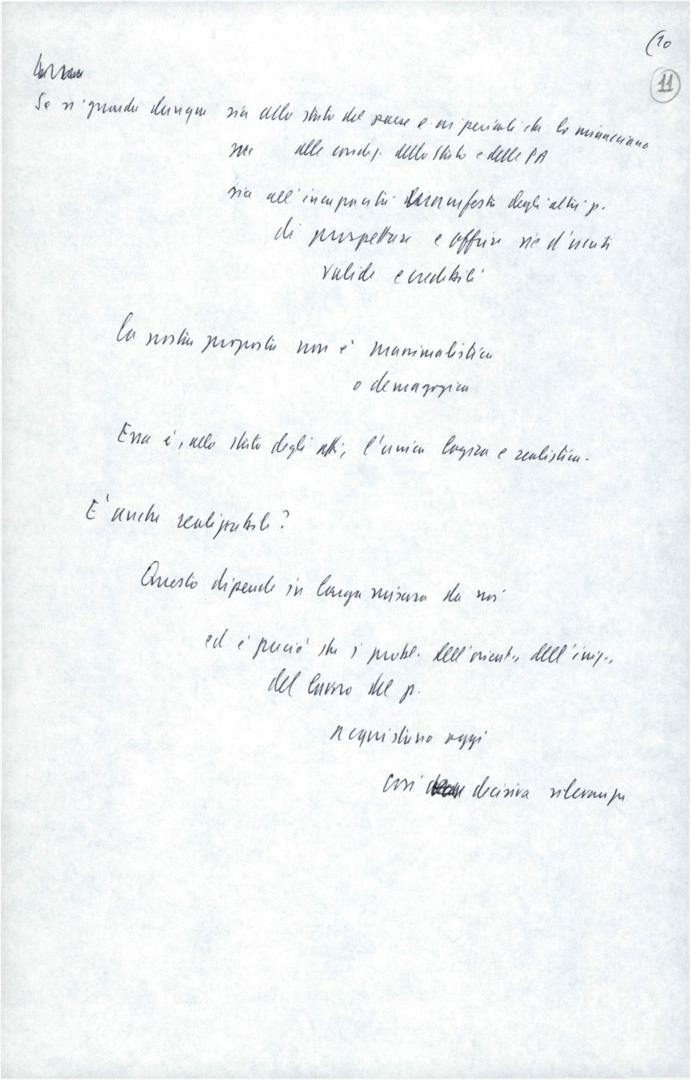 (10
11
Se si guarda dunque sia allo stato del paese e ai pericoli che lo minacciano
sia alle condiz. dello Stato e delle PA
sia all'incapacità manifesta degli altri p.
di prospettare e offrire vie d'uscita
valide e credibili
la nostra proposta non è massimalistica
o demagogica
Essa è, allo stato degli atti, l'unica logica e realistica.
E' anche realizzabile?
Questo dipende in larga misura da noi
ed è perciò che i probl. dell'orient., dell'imp.,
del lavoro del p.
acquistano oggi
così decisiva rilevanza